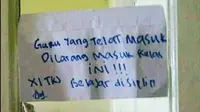 Guru yang Telat Masuk
Dilarang Masuk Kelas
INI !!!
XI TKJ Belajar disiplin